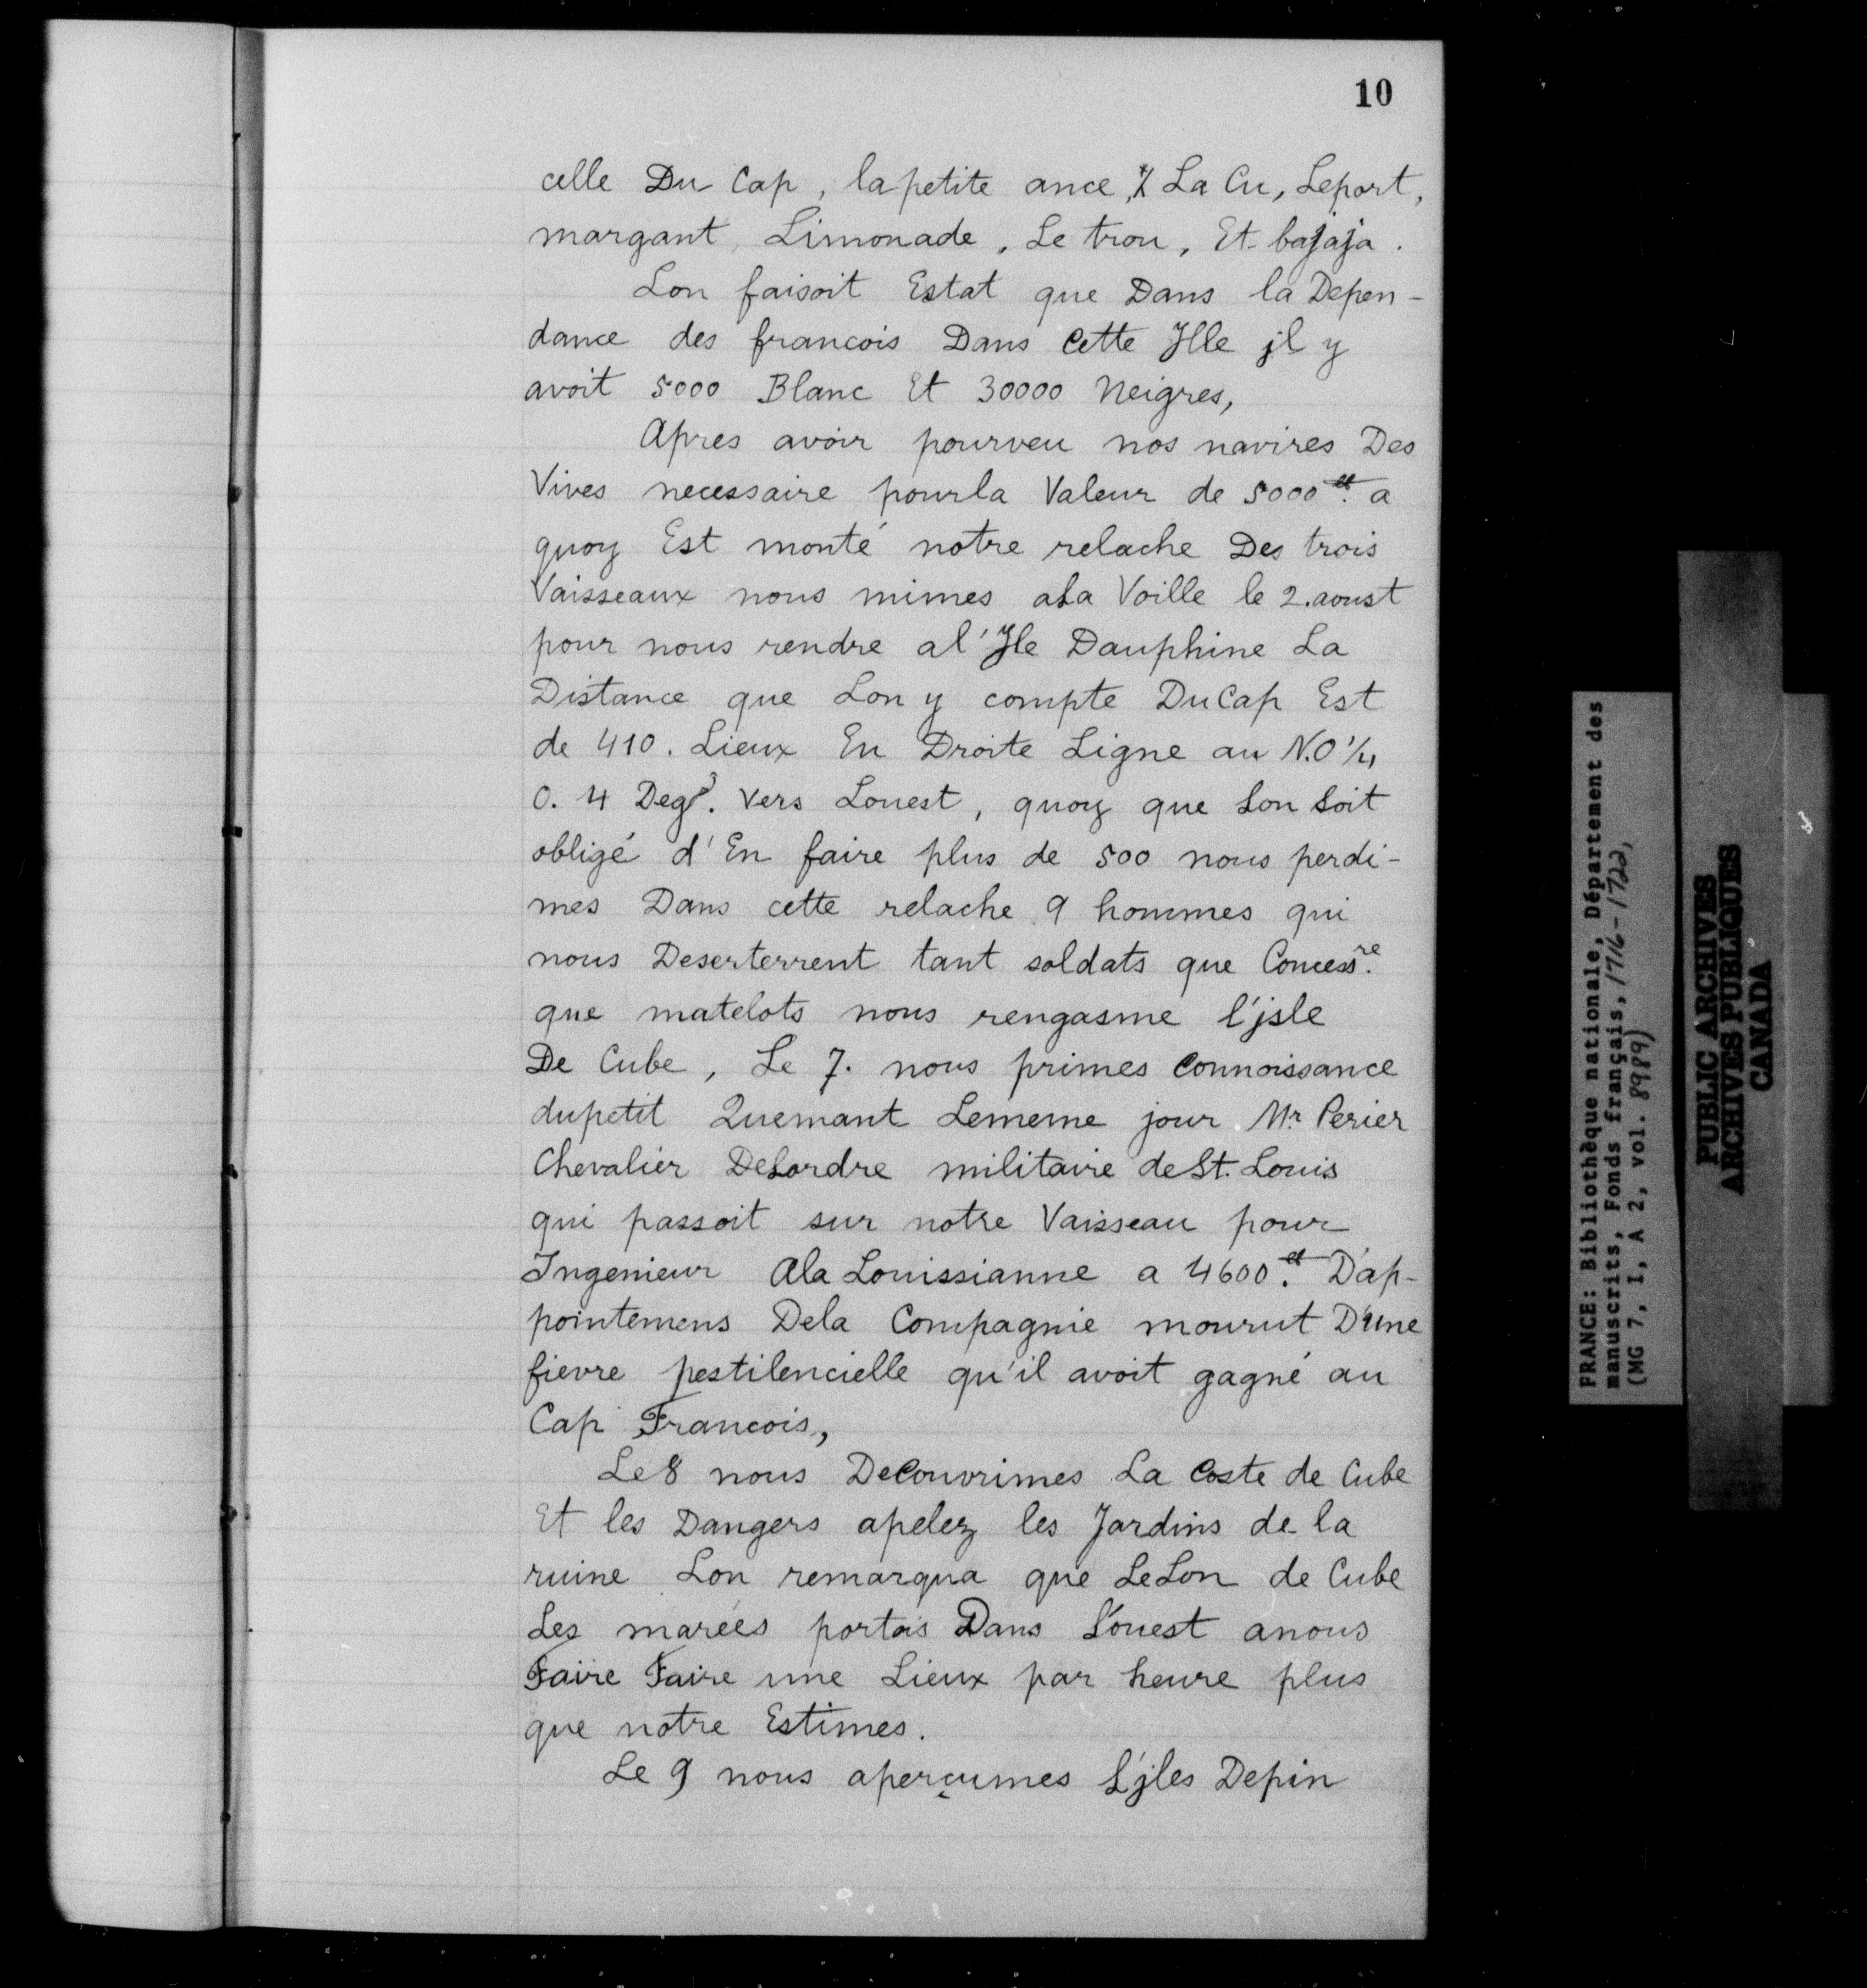 10
celle Du Cap, lapetite ance, La Cu, Leport,
margant, Limonade, Le trou, Et bajaja.
Lon faisoit Estat que Dans la Depen-
dance des francois Dans Cette Jlle jl y
avoit 5000 Blanc Et 30000 Neigres,
Apres avoir pourveu nos navires Des
Vives necessaire pourla Valeur de 5000 ₶. a
quoy Est monté notre relache Des trois
Vaisseaux nous mimes aLa Voille le 2. aoust
pour nous rendre al'Jle Dauphine La
Distance que Lon y compte DuCap Est
de 410. Lieux En Droite Ligne au N.O 1/4
O. 4 Degs. Vers Louest, quoy que Lon Soit
obligé d'En faire plus de 500 nous perdi-
mes Dans cette relache 9 hommes qui
nous Deserterrent tant soldats que Concessre.
que matelots nous rengasme l'jsle
De Cube, Le 7. nous primes Connoissance
dupetit Quemant Lememe jour Mr Perier
Chevalier DeLordre militaire deSt. Louis
qui passoit sur notre Vaisseau pour
Ingenieur Ala Louissianne a 4600.₶ D'ap-
pointemens Dela Compagnie mourut D'une
fievre pestilencielle qu'il avoit gagné au
Cap Francois,
Le 8 nous DeCouvrimes La Coste de Cube
Et les Dangers apelez les Jardins de la
ruine Lon remarqua que LeLon de Cube
Les marées portois Dans L'ouest anous
Faire Faire une Lieux par heure plus
que notre Estimes.
Le 9 nous aperçumes L'jles Depin
FRANCE: Bibliothèque nationale, Département des
manuscrits, Fonds français, 1716-1722,
(MG 7, I, A 2, vol. 8989)
PUBLIC ARCHIVES
ARCHIVES PUBLIQUES
CANADA